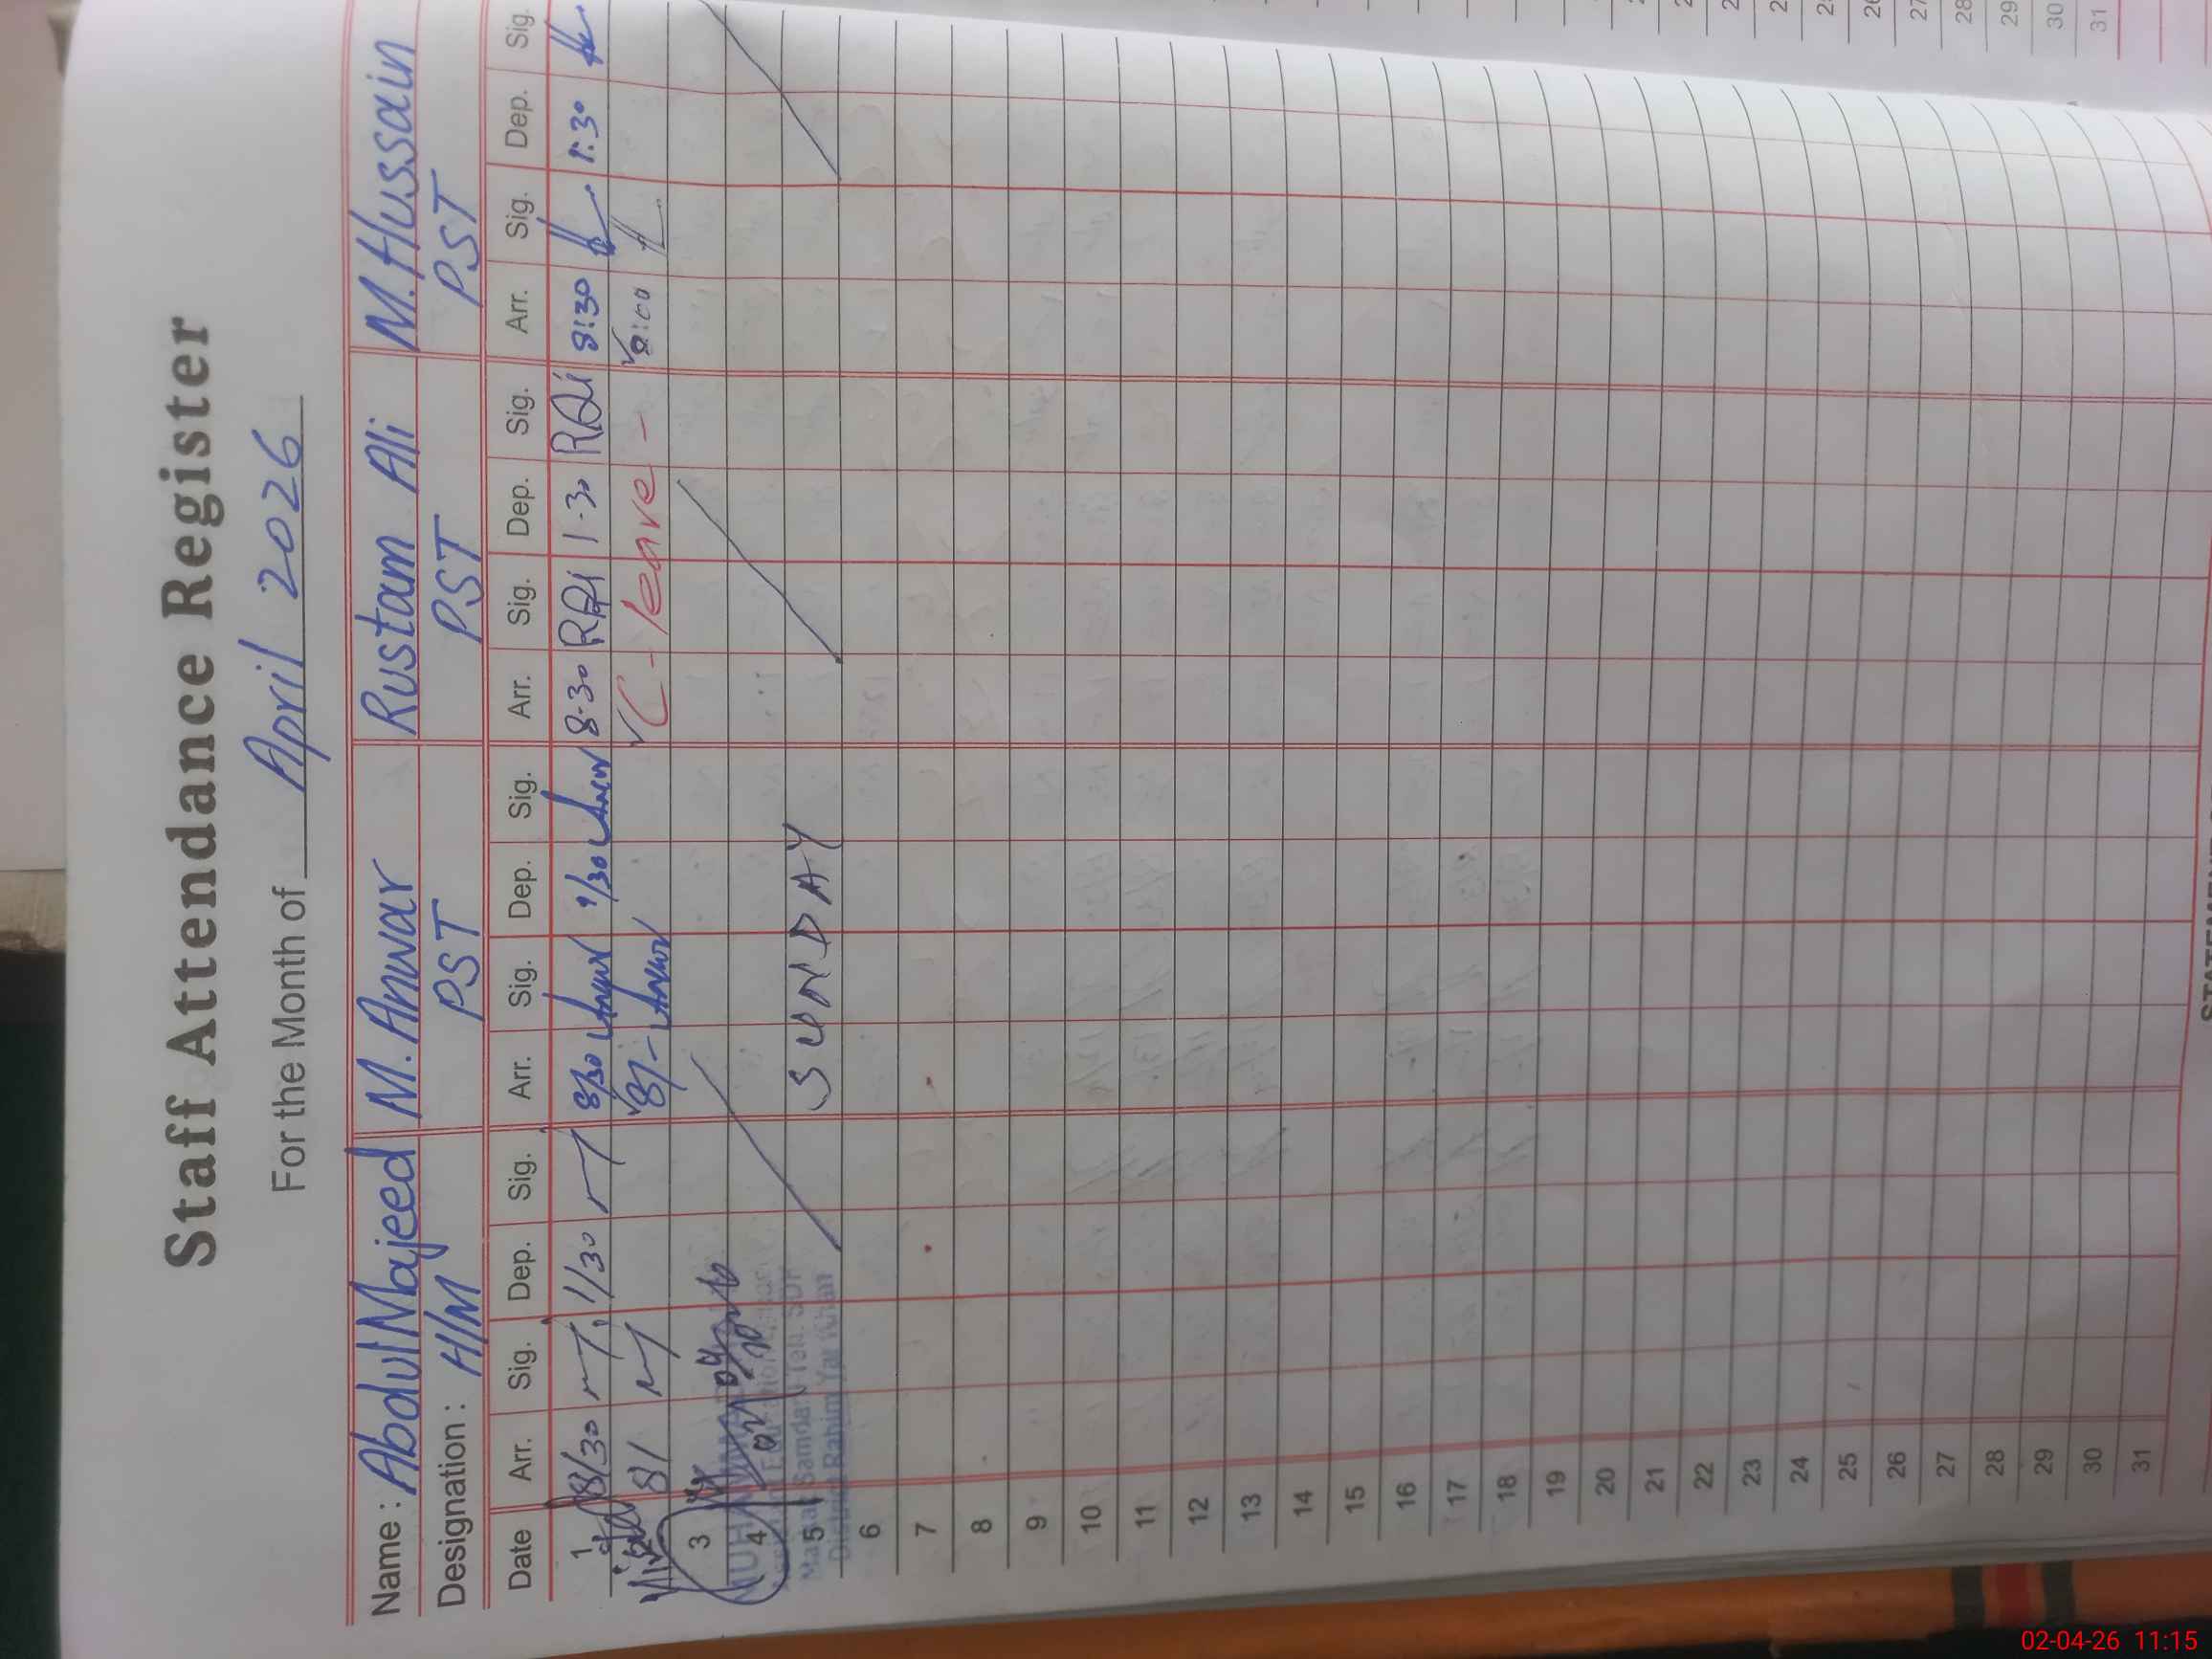 Staff Attendance Register
For the Month of April 2026
Name : Abdul Majeed M. Anwar Rustam Ali M. Hussain
Designation : H/M PST PST PST
Date Arr. Sig. Dep. Sig. Arr. Sig. Dep. Sig. Arr. Sig. Dep. Sig. Arr. Sig. Dep. Sig.
1 8/30 1/30 8/30 Anwar 1/30 Anwar 8-30 RAli 1-30 RAli 8:30 1:30
8/ 8/- Anwar C-leave- 8:00
3
4
5 SUNDAY
District Rahim Yar Khan
6
7
8
9
10
11
12
13
14
15
16
17
18
19
20
21
22
23
24
25
26
27
28
29
30
31
26
27
28
29
30
31
02-04-26 11:15